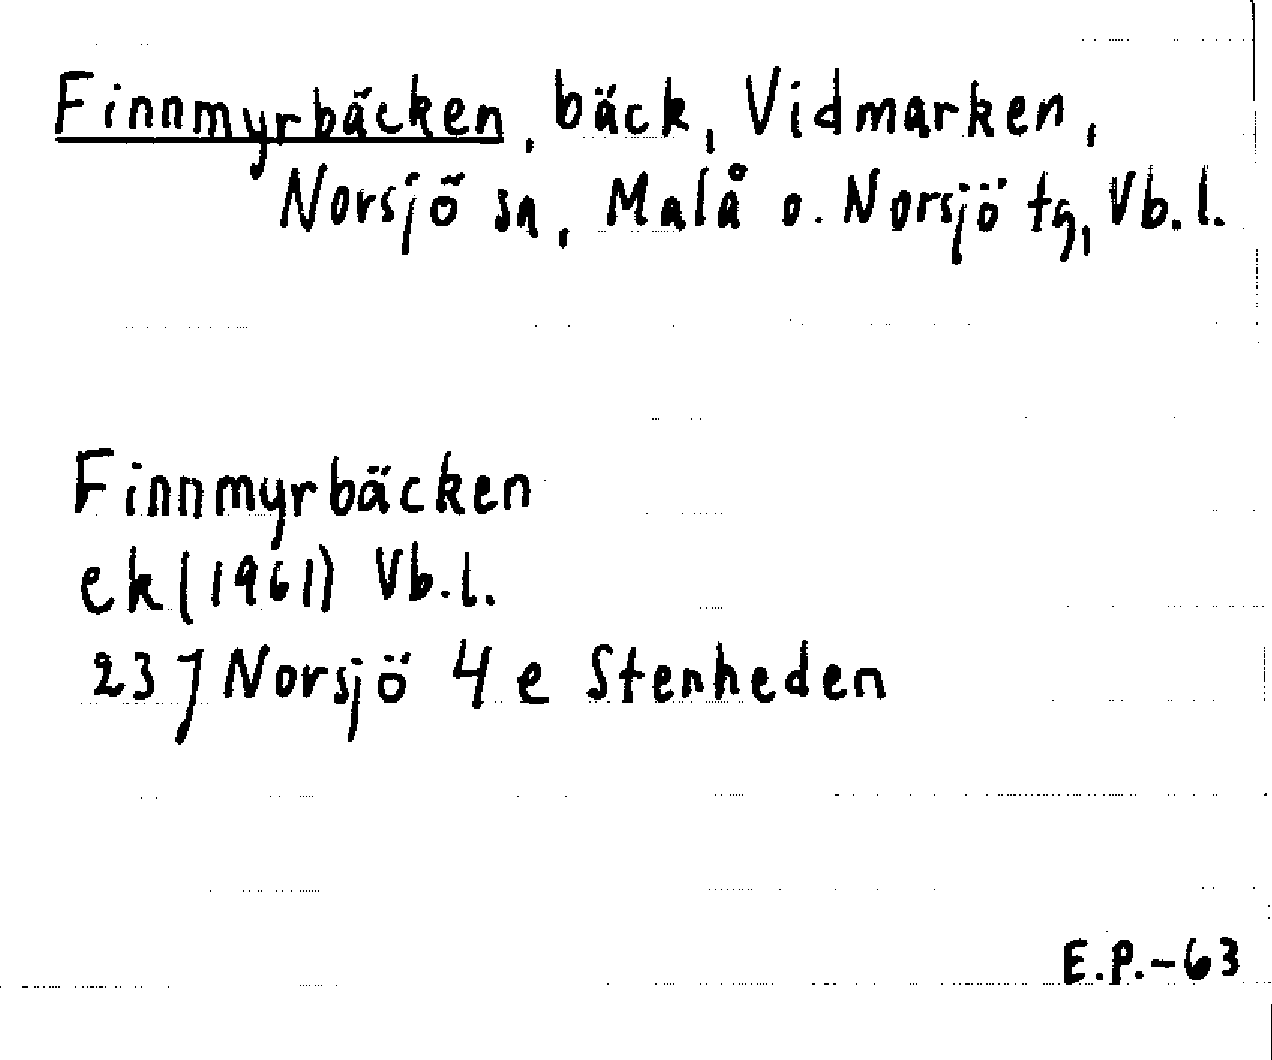 Finnmyrbäcken, bäck, Vidmarken,
Norsjö sn, Malå o. Norsjö tg, Vb. l.
Finnmyrbäcken
ek (1961) Vb. l.
23 J Norsjö 4 e Stenheden
E.P.-63